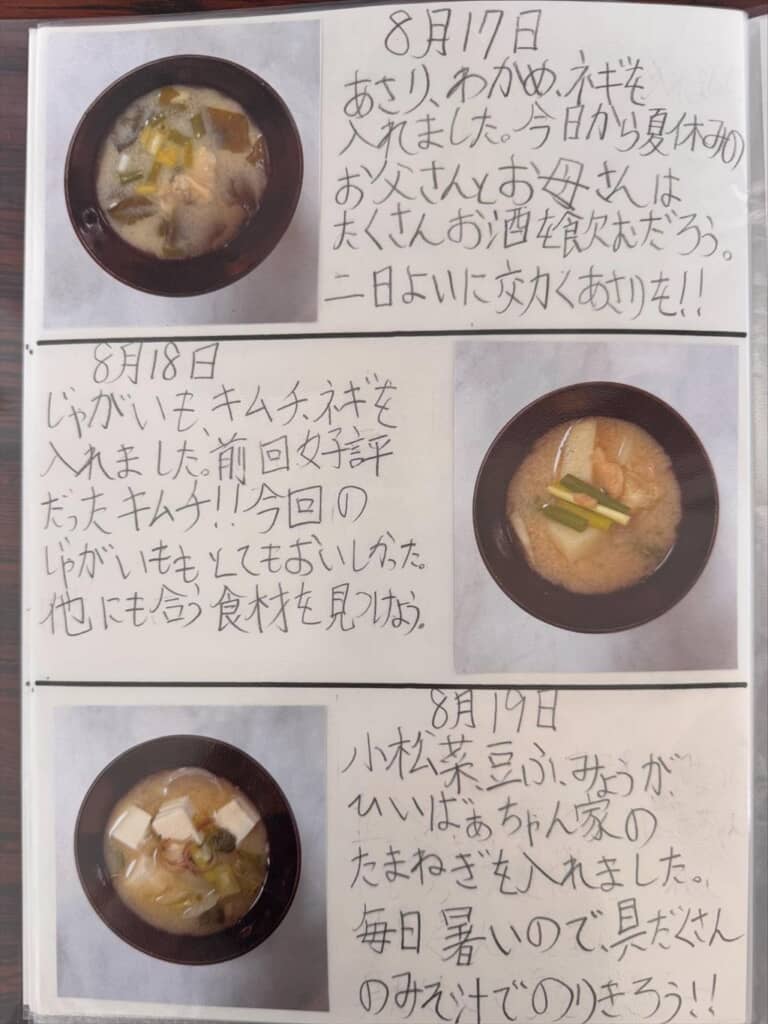 8月17日
あさり、わかめ、ネギを
入れました。今日から夏休みの
お父さんとお母さんは
たくさんお酒を飲むだろう。
二日よいに効くあさりを!!
8月18日
じゃがいも、キムチ、ネギを
入れました。前回好評
だったキムチ!!今回の
じゃがいももとてもおいしかった。
他にも合う食材を見つけよう。
8月19日
小松菜、豆ふ、みょうが、
ひいばぁちゃん家の
たまねぎを入れました。
毎日暑いので、具だくさん
のみそ汁でのりきろう!!